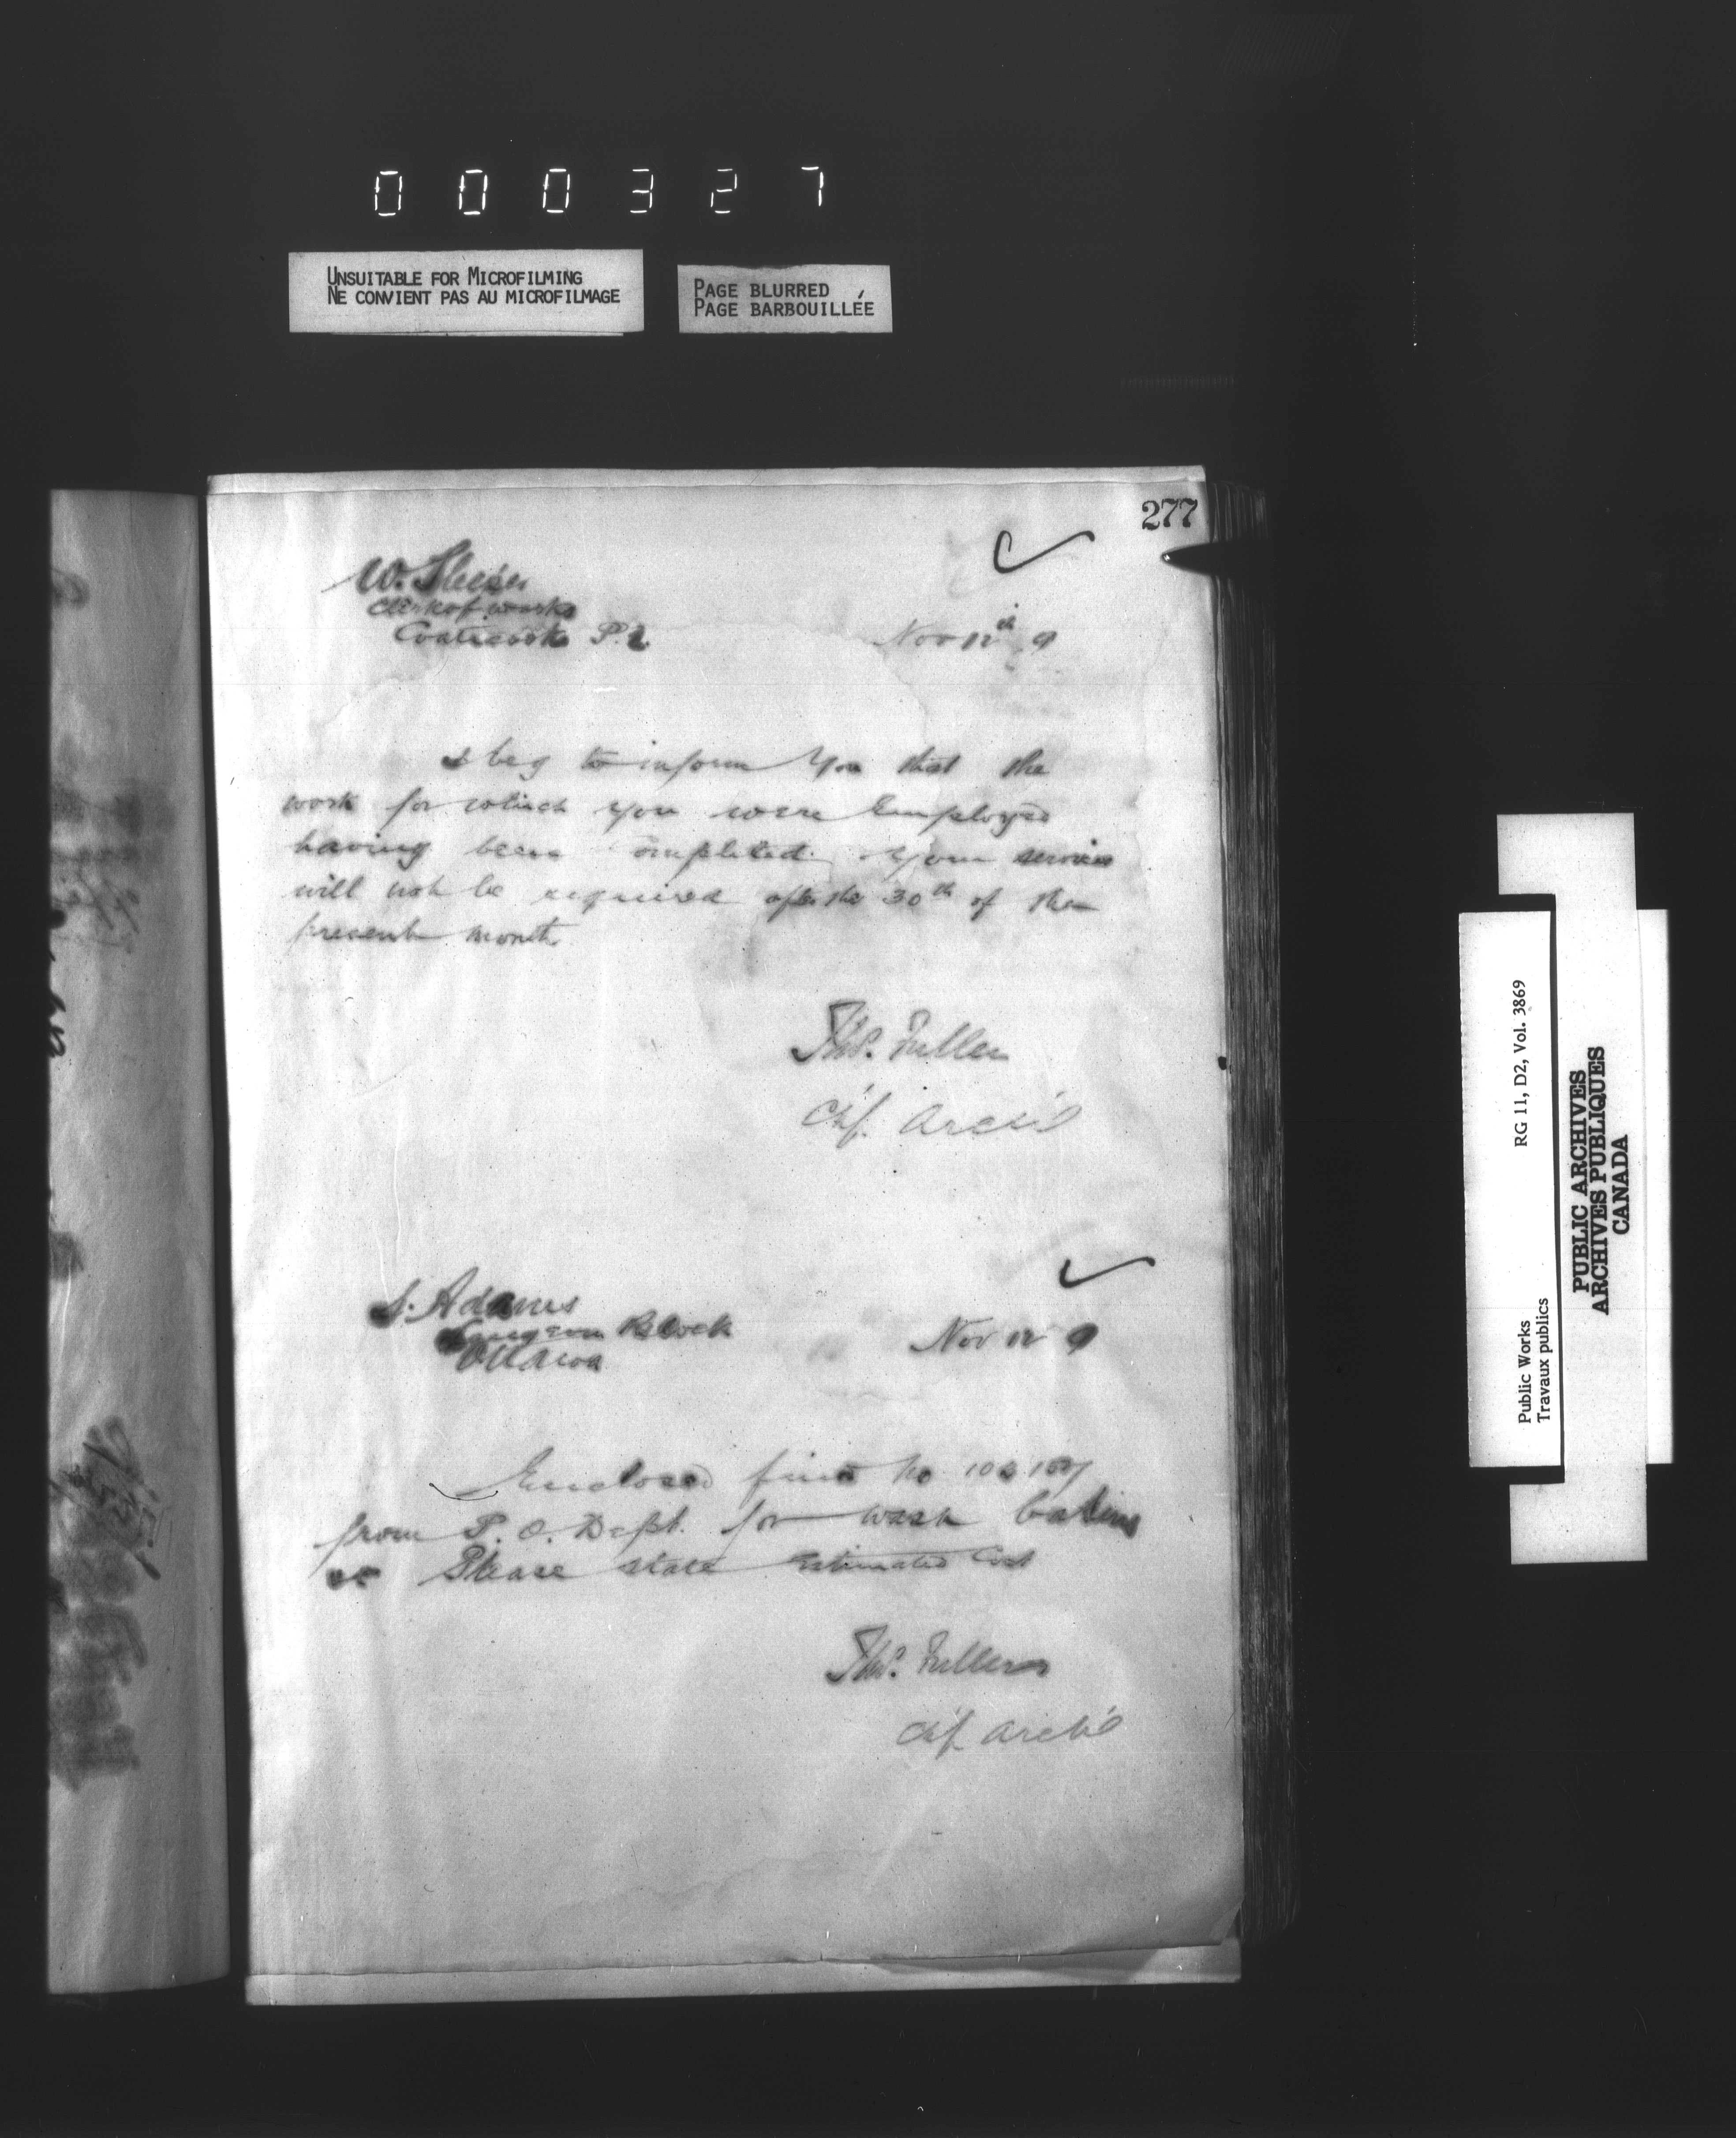 000327
UNSUITABLE FOR MICROFILMING
NE CONVIENT PAS AU MICROFILMAGE
PAGE BLURRED
PAGE BARBOUILLÉE
277
W. Sleeper
Clerk of works
Coaticook P.Q
Nov 12th 9
I beg to inform You that the
work for which you were Employed
having been completed. Your services
will not be required after the 30th of the
present month
Thos. Fuller
Chf. Arch't
S. Adams
Langevin Block
Ottawa
Nov 12 9
Enclosed find No
from P. O. Dept. for wash basins
Please state Estimated Cost
Thos. Fuller
Chf. Arch't
Public Works
Travaux publics
RG 11, D2, Vol. 3869
PUBLIC ARCHIVES
ARCHIVES PUBLIQUES
CANADA